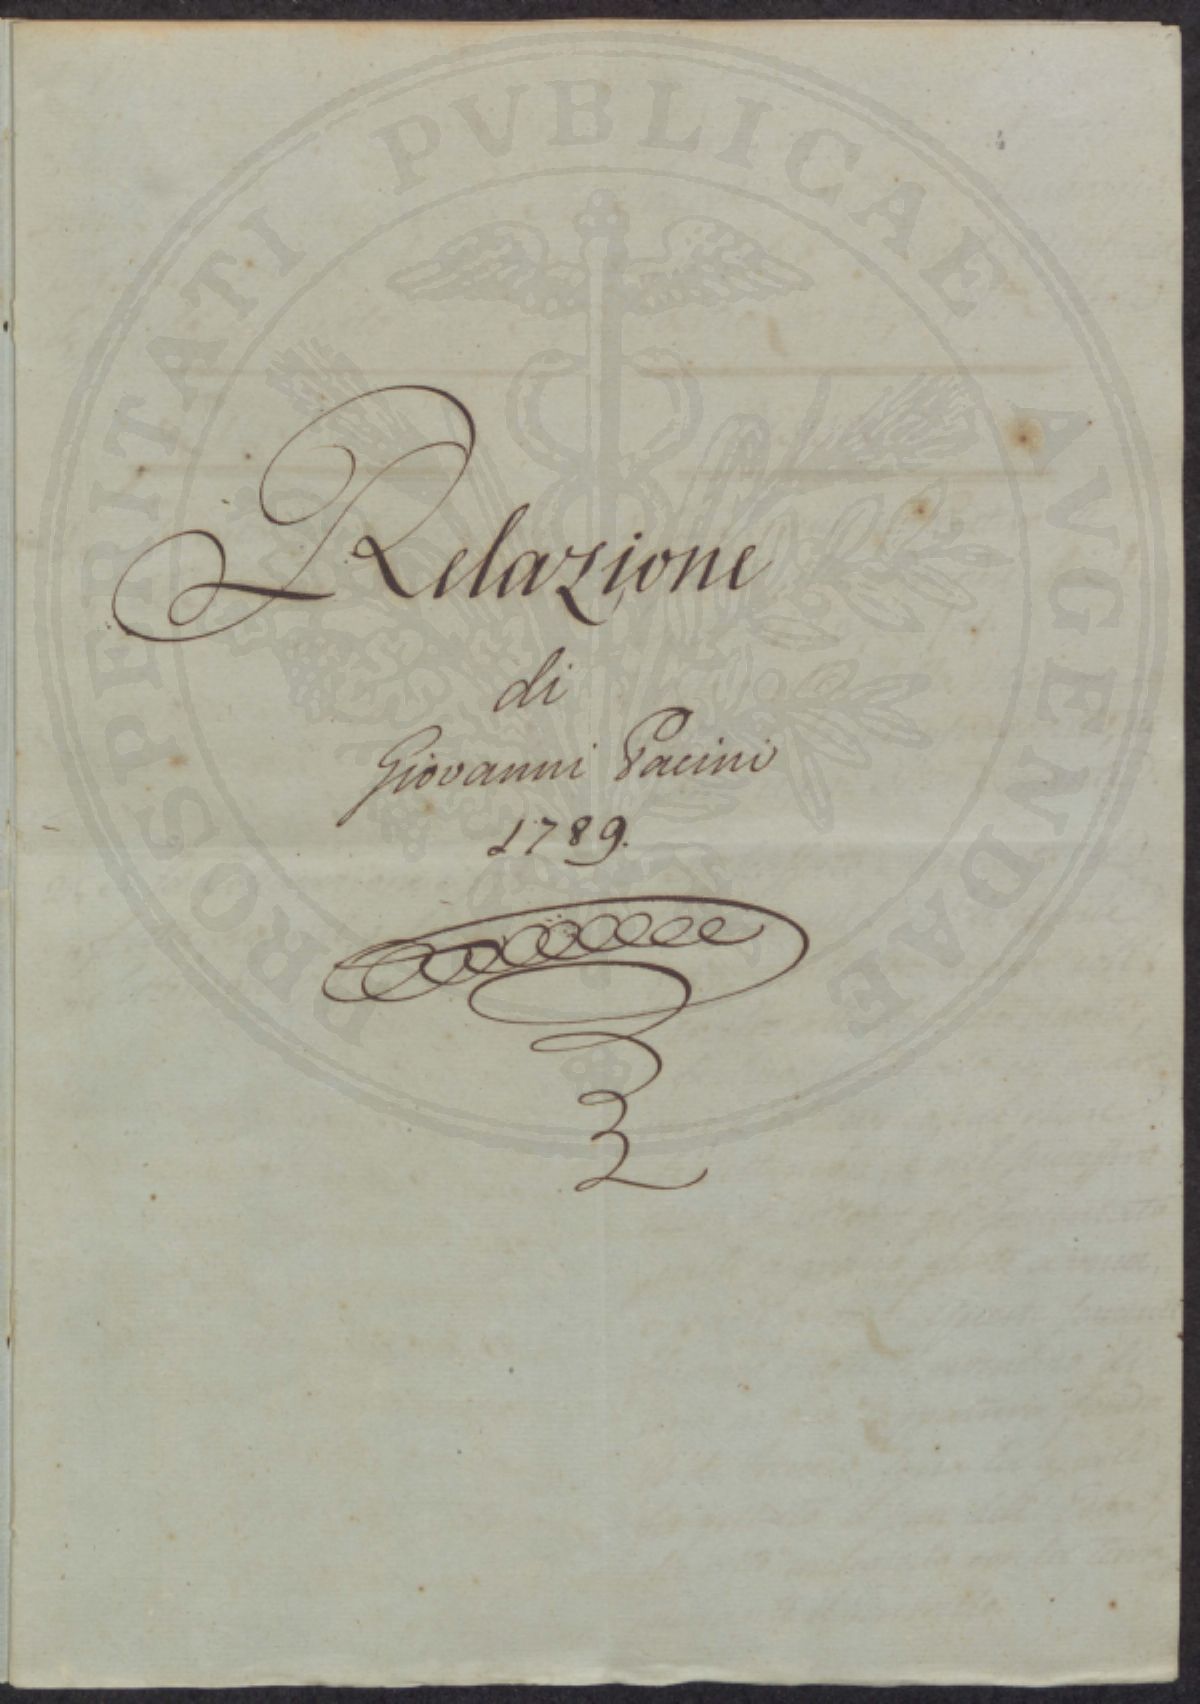 PROSPERITATI PVBLICAE AVGENDAE
Relazione
di
Giovanni Pacini
1789.